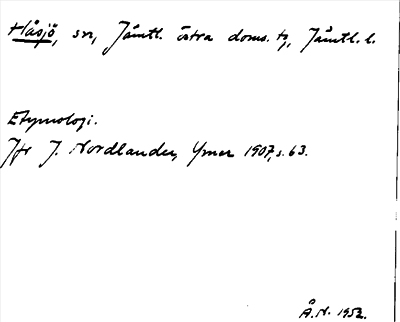 Håsjö, sn, Jämtl. östra doms. tg, Jämtl. l.
Etymologi.
Jfr J. Nordlander, Ymer 1907, s. 63.
Å. N. 1952.